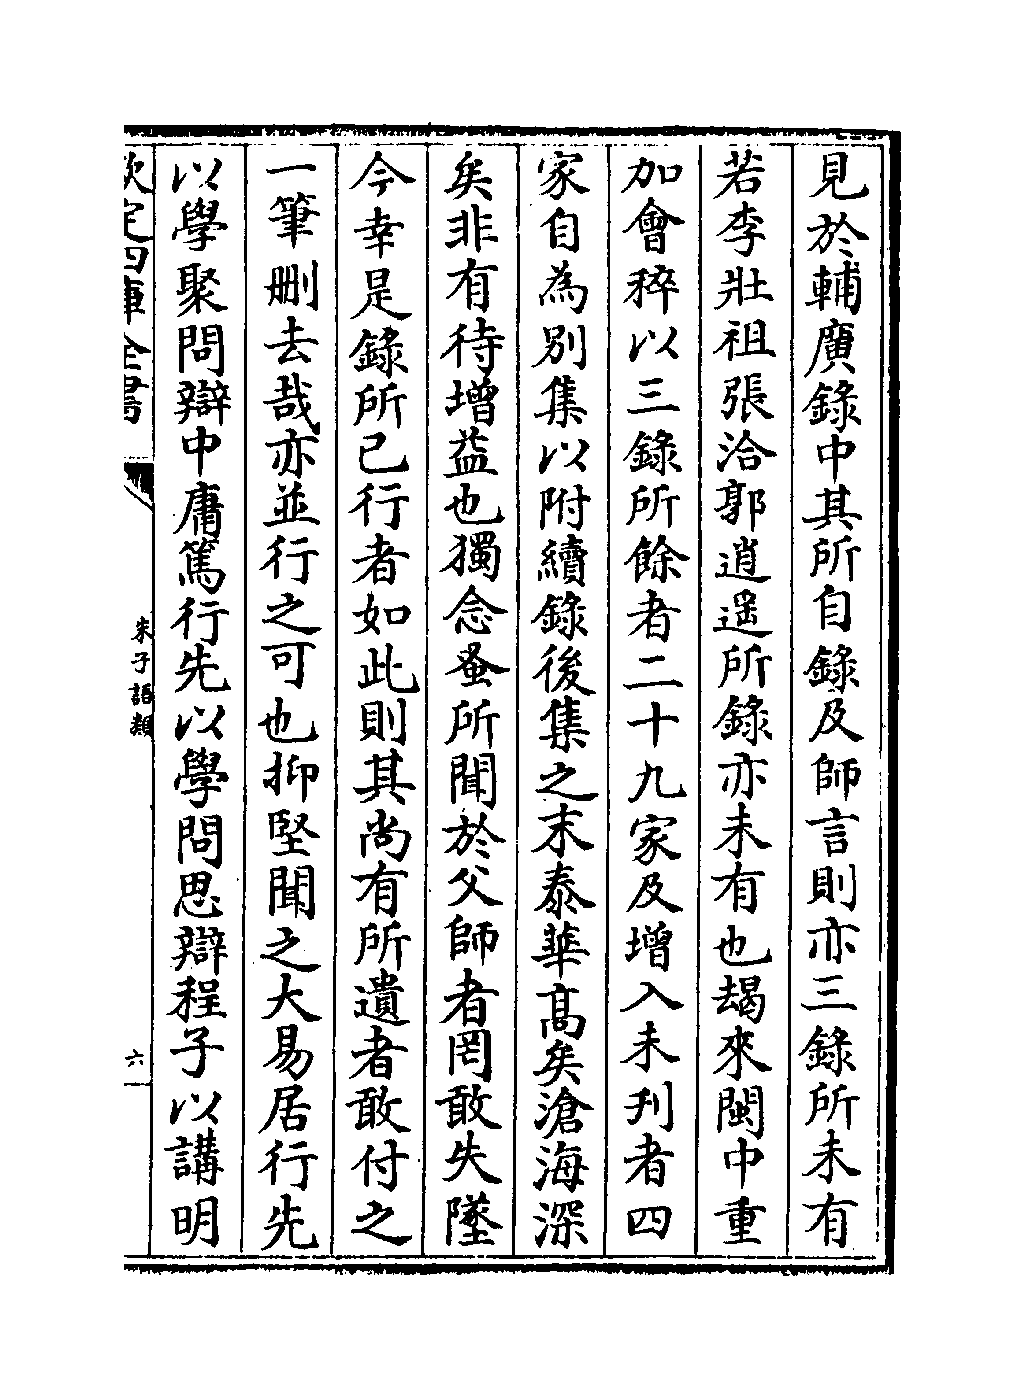 見於輔廣錄中其所自錄及師言則亦三錄所未有
若李壯祖張洽郭逍遥所錄亦未有也朅來閩中重
加會稡以三錄所餘者二十九家及增入未刋者四
家自為别集以附續錄後集之末泰華髙矣滄海深
矣非有待增益也獨念蚤所聞於父師者罔敢失墜
今幸是錄所已行者如此則其尚有所遺者敢付之
一筆刪去哉亦並行之可也抑堅聞之大易居行先
以學聚問辯中庸篤行先以學問思辯程子以講明
欽定四庫全書
朱子語類
六